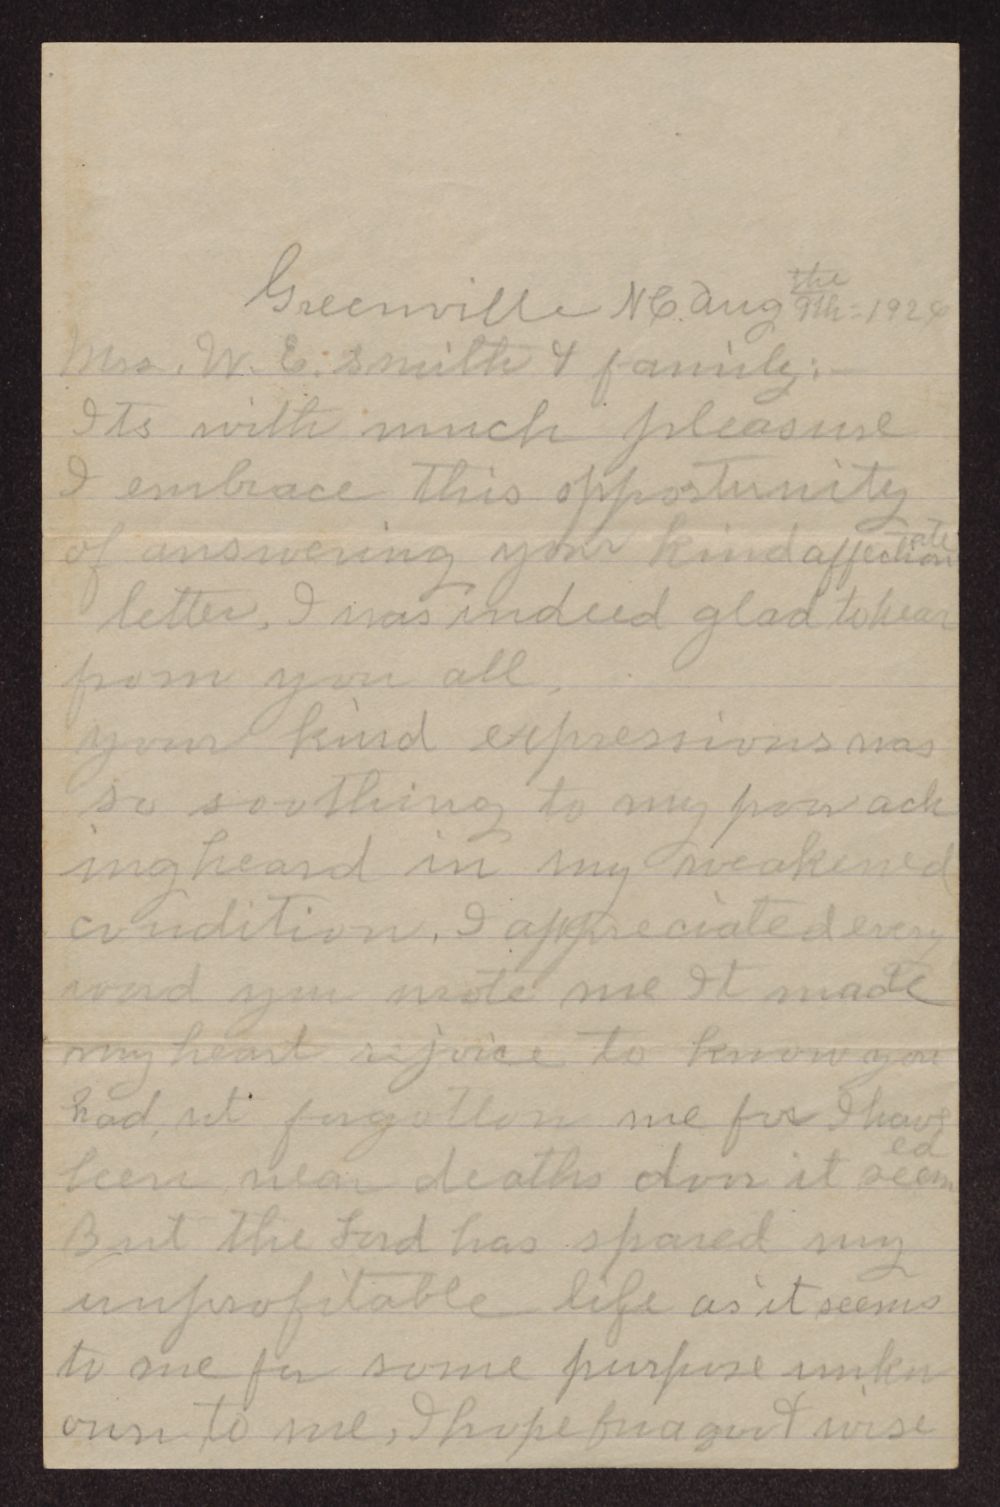 Greenville NC. Aug 9th the = 192
Mrs. W. E. Smith & family:-
Its with much pleasure
I embrace this opportunity
of answering your kind affectionate
letter, I was indeed glad to hear
from you all,
your kind expressions was
so soothing to my poor ach
ing heard in my weakened
condition, I appreciated every
word you wrote me It made
my heart rejoice to know you
had, nt forgotton me for I have
been near deaths door it seemed
But the Lord has spared my
unprofitable life as it seems
to me for some purpose unkn
own to me, I hope for a good & wise